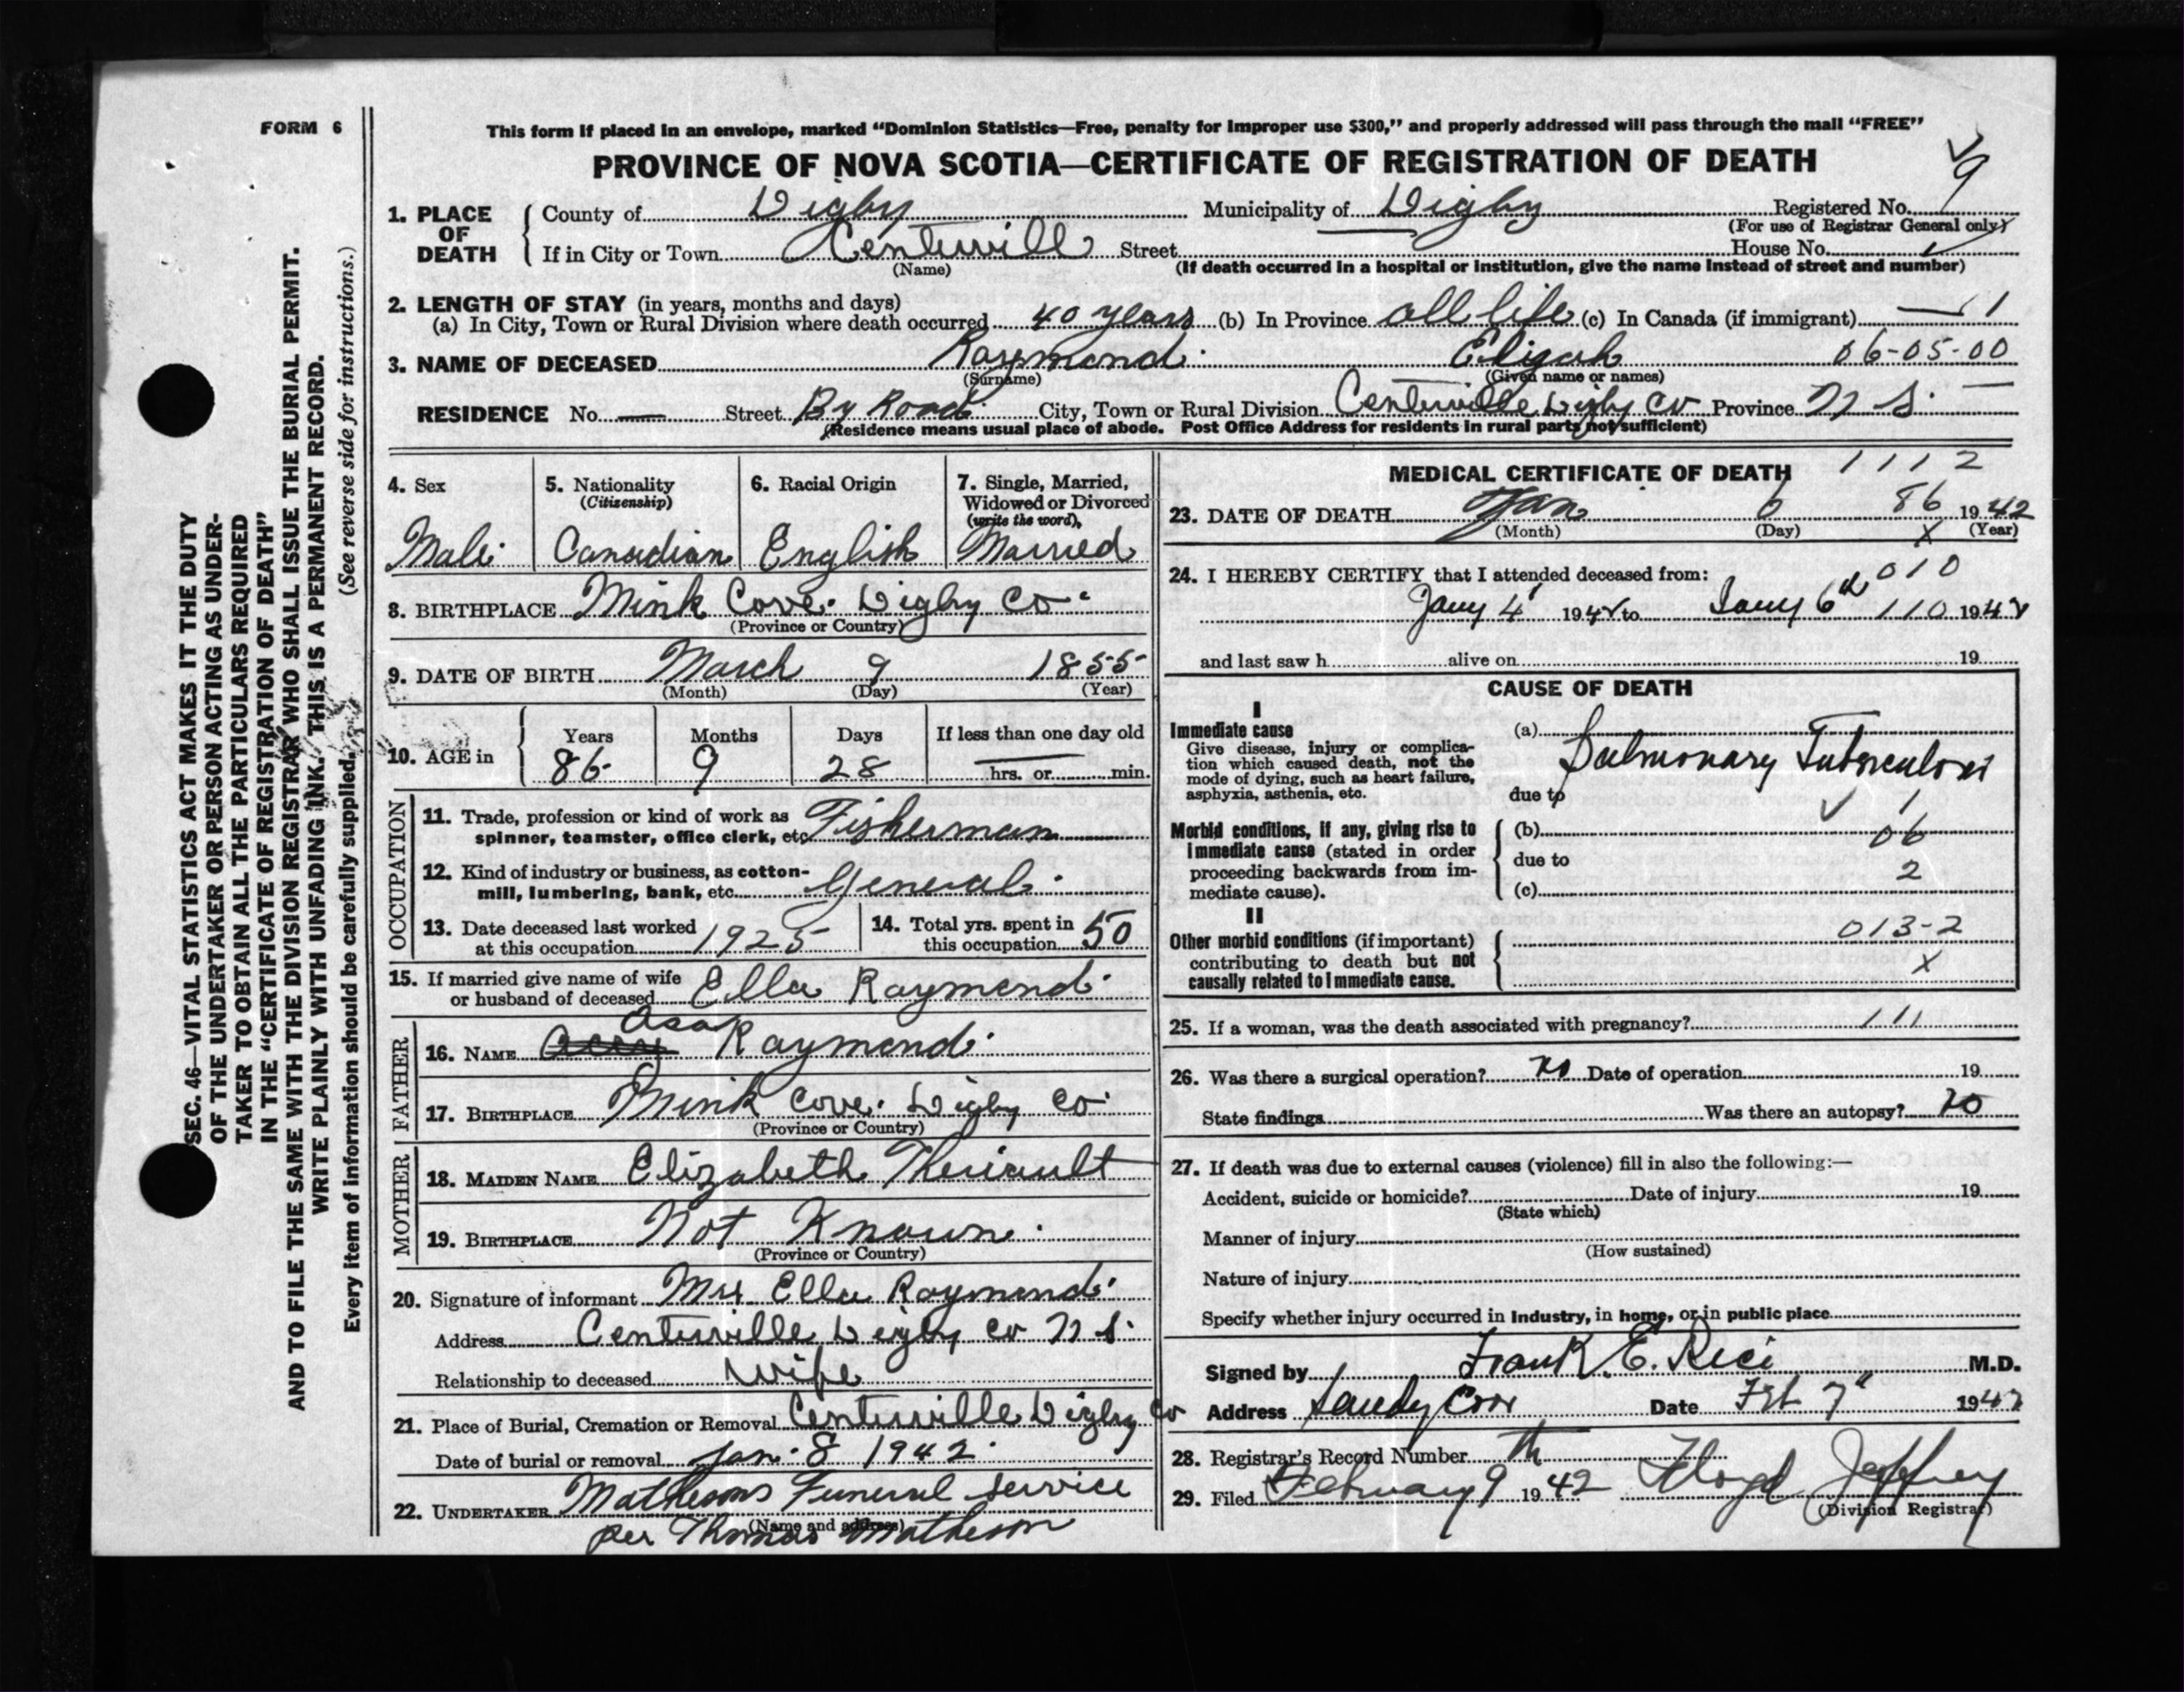 FORM 6
This form if placed in an envelope, marked “Dominion Statistics—Free, penalty for improper use $300,” and properly addressed will pass through the mail “FREE”
PROVINCE OF NOVA SCOTIA—CERTIFICATE OF REGISTRATION OF DEATH
9
1. PLACE OF DEATH
County of Digby Municipality of Digby Registered No.
(For use of Registrar General only)
If in City or Town Centerville Street House No.
(Name) (If death occurred in a hospital or institution, give the name instead of street and number)
2. LENGTH OF STAY (in years, months and days)
(a) In City, Town or Rural Division where death occurred 40 years (b) In Province all life (c) In Canada (if immigrant) — 1
3. NAME OF DECEASED Raymond Elijah 06-05-00
(Surname) (Given name or names)
RESIDENCE No. — Street By Road City, Town or Rural Division Centerville Digby Co Province N S. —
(Residence means usual place of abode. Post Office Address for residents in rural parts not sufficient)
4. Sex
Male
5. Nationality
(Citizenship)
Canadian
6. Racial Origin
English
7. Single, Married, Widowed or Divorced
(write the word)
Married
8. BIRTHPLACE Mink Cove. Digby Co.
(Province or Country)
9. DATE OF BIRTH March 9 1855
(Month) (Day) (Year)
10. AGE in
Years Months Days If less than one day old
86 9 28 hrs. or min.
OCCUPATION
11. Trade, profession or kind of work as
spinner, teamster, office clerk, etc. Fisherman
12. Kind of industry or business, as cotton-
mill, lumbering, bank, etc. General.
13. Date deceased last worked
at this occupation 1925
14. Total yrs. spent in
this occupation 50
15. If married give name of wife
or husband of deceased Ella Raymond.
FATHER
Asa
16. NAME Raymond.
17. BIRTHPLACE Mink Cove. Digby Co.
(Province or Country)
MOTHER
18. MAIDEN NAME Elizabeth Theriault
19. BIRTHPLACE Not Known.
(Province or Country)
20. Signature of informant Mrs Ella Raymond.
Address Centerville Digby Co N S.
Relationship to deceased Wife
21. Place of Burial, Cremation or Removal Centerville Digby Co
Date of burial or removal Jan. 8 1942.
22. UNDERTAKER Mathesons Funeral Service
(Name and address)
per Thomas Matheson
MEDICAL CERTIFICATE OF DEATH 1112
23. DATE OF DEATH Jan 6 86 1942
(Month) (Day) X (Year)
24. I HEREBY CERTIFY that I attended deceased from: 010
Jany 4 1942 to Jany 6th 110 1942
and last saw h alive on 19
CAUSE OF DEATH
I
Immediate cause
Give disease, injury or complica-
tion which caused death, not the
mode of dying, such as heart failure,
asphyxia, asthenia, etc.
(a) Pulmonary Tuberculosis
due to 1
Morbid conditions, if any, giving rise to
immediate cause (stated in order
proceeding backwards from im-
mediate cause).
(b) 06
due to 2
(c)
II
Other morbid conditions (if important)
contributing to death but not
causally related to immediate cause.
013-2
X
25. If a woman, was the death associated with pregnancy? 111
26. Was there a surgical operation? no Date of operation 19
State findings Was there an autopsy? no
27. If death was due to external causes (violence) fill in also the following:—
Accident, suicide or homicide? Date of injury 19
(State which)
Manner of injury
(How sustained)
Nature of injury
Specify whether injury occurred in industry, in home, or in public place
Signed by Frank E. Rice M.D.
Address Sandy Cove Date Feb 7" 1942
28. Registrar's Record Number
29. Filed February 9 1942 Floyd Jeffrey
(Division Registrar)
SEC. 46—VITAL STATISTICS ACT MAKES IT THE DUTY
OF THE UNDERTAKER OR PERSON ACTING AS UNDER-
TAKER TO OBTAIN ALL THE PARTICULARS REQUIRED
IN THE “CERTIFICATE OF REGISTRATION OF DEATH”
AND TO FILE THE SAME WITH THE DIVISION REGISTRAR WHO SHALL ISSUE THE BURIAL PERMIT.
WRITE PLAINLY WITH UNFADING INK. THIS IS A PERMANENT RECORD.
Every item of information should be carefully supplied. (See reverse side for instructions.)